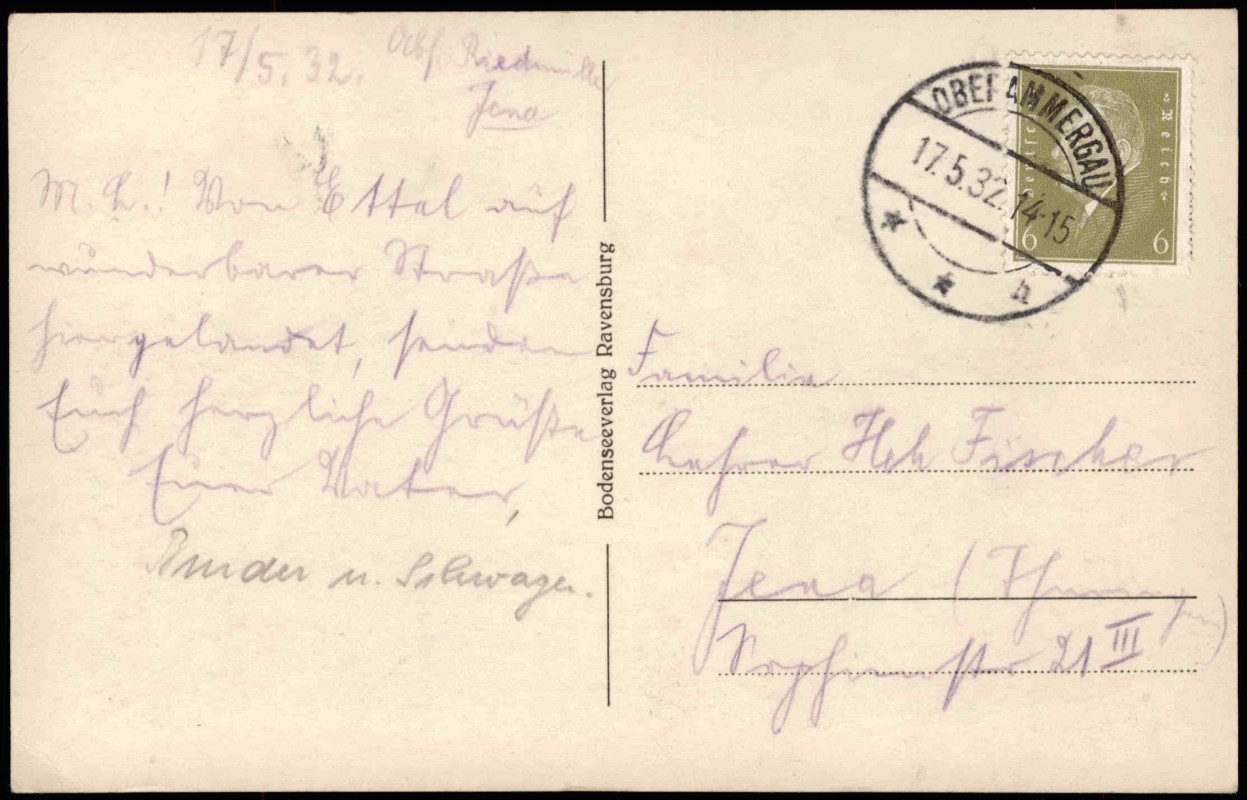 17/5. 32. Abs. Riedmülle
Jena
M. L.! Von Ettal auf
wunderbarer Straße
hier gelandet, senden
Euch herzliche Grüße
Euer Vater,
Bruder u. Schwager.
Bodenseeverlag Ravensburg
OBERAMMERGAU
17.5.32.14-15
h
Reich
6 6
Familie
Lehrer Hch Fischer
Jena (Thüringen)
Sophienstr 21 III